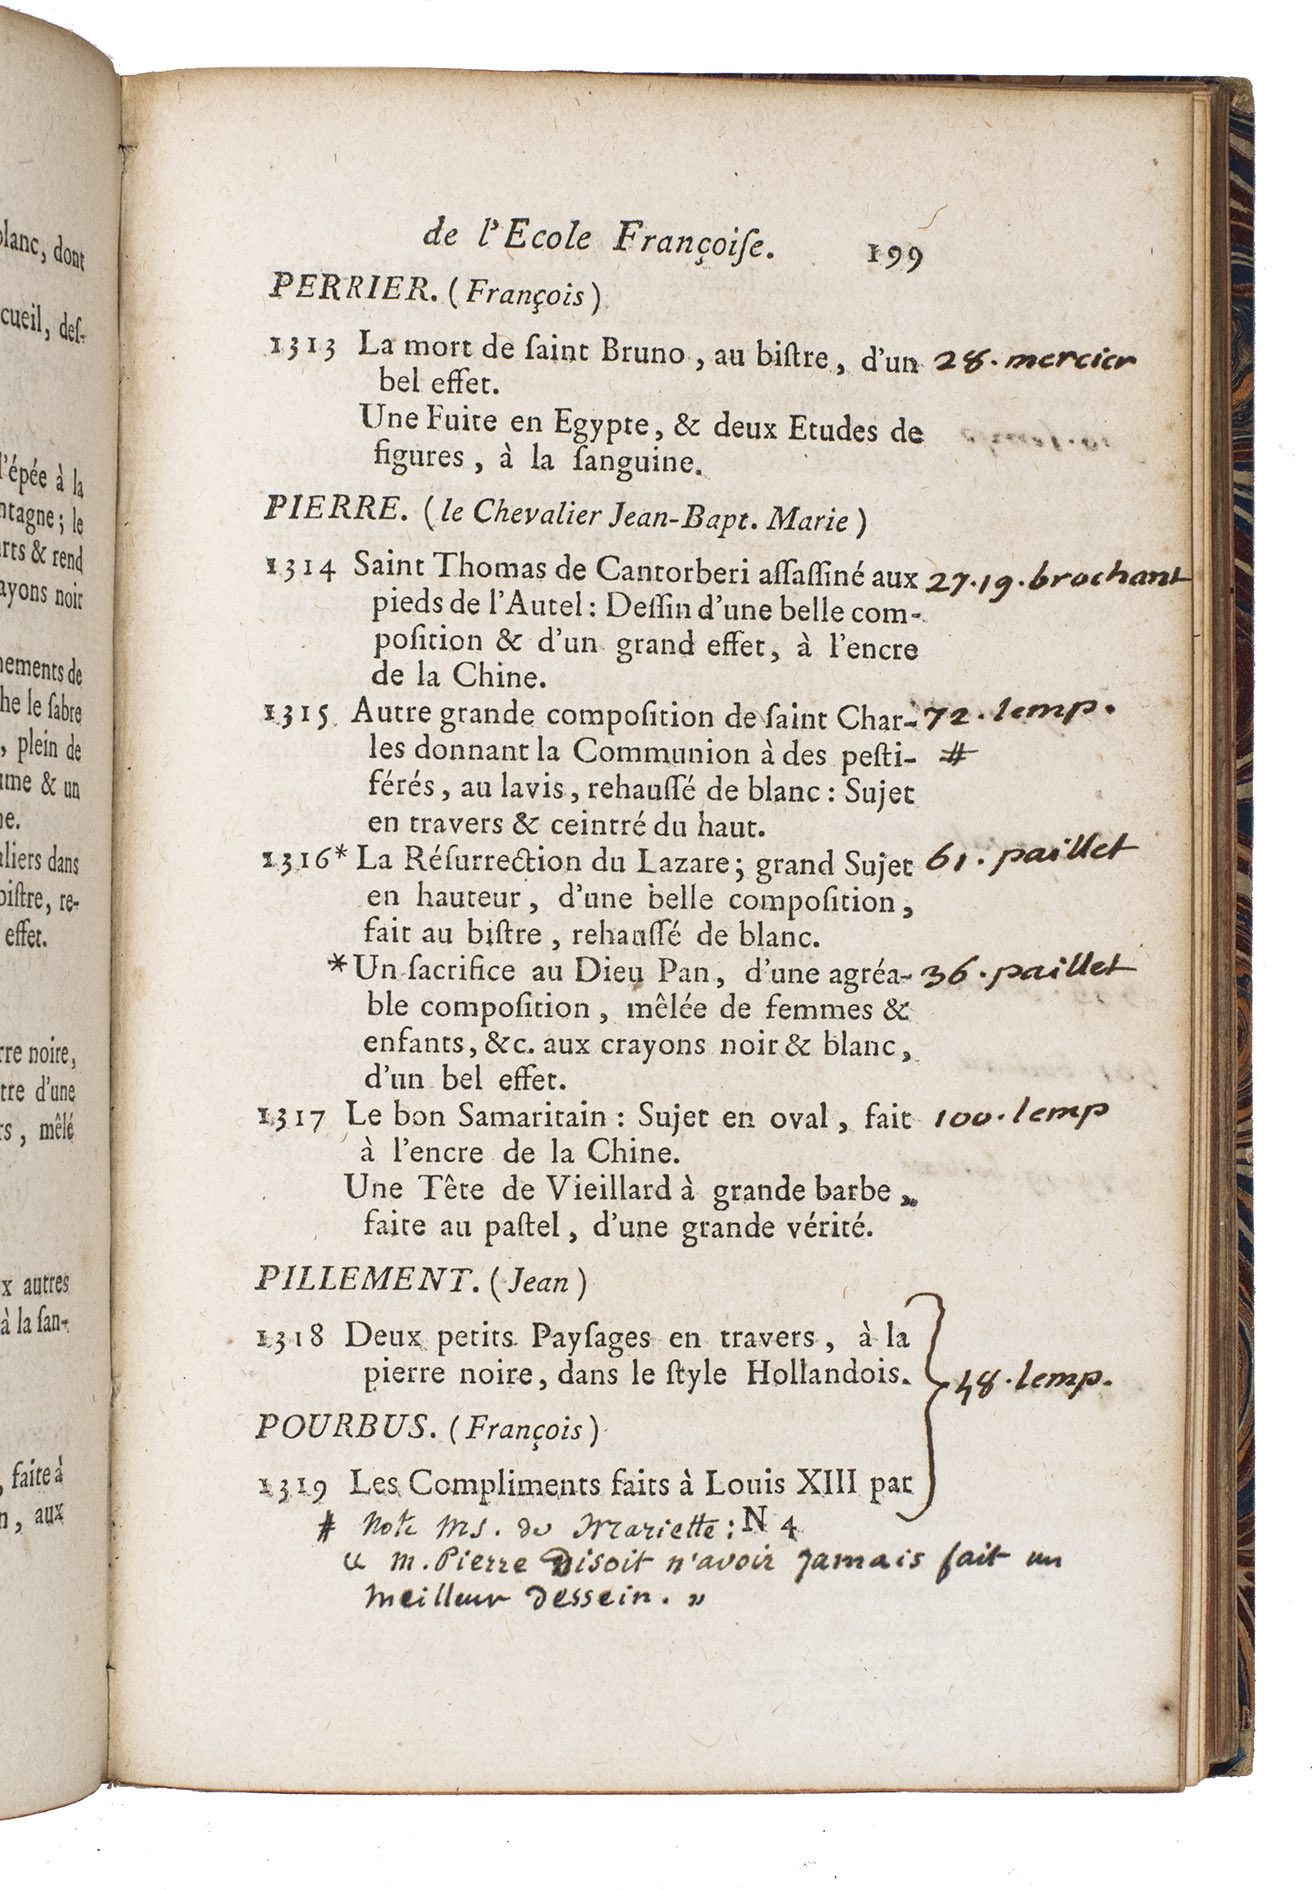 blanc, dont
cueil, deſ-
l'épée à la
ntagne; le
rts & rend
ayons noir
nements de
he le ſabre
, plein de
ume & un
ne.
liers dans
biſtre, re-
effet.
rre noire,
tre d'une
rs, mêlé
x autres
à la ſan-
, faite à
n, aux
de l'Ecole Françoiſe. 199
PERRIER. (François)
1313 La mort de ſaint Bruno, au biſtre, d'un 28. mercier
bel effet.
Une Fuite en Egypte, & deux Etudes de
figures, à la ſanguine.
PIERRE. (le Chevalier Jean-Bapt. Marie)
1314 Saint Thomas de Cantorberi aſſaſſiné aux 27.19. brochant
pieds de l'Autel: Deſſin d'une belle com-
poſition & d'un grand effet, à l'encre
de la Chine.
1315 Autre grande compoſition de ſaint Char- 72. lemp.
les donnant la Communion à des peſti- #
férés, au lavis, rehauſſé de blanc: Sujet
en travers & ceintré du haut.
1316* La Réſurrection du Lazare; grand Sujet 61. paillet
en hauteur, d'une belle compoſition,
fait au biſtre, rehauſſé de blanc.
* Un ſacrifice au Dieu Pan, d'une agréa- 36. paillet
ble compoſition, mêlée de femmes &
enfants, &c. aux crayons noir & blanc,
d'un bel effet.
1317 Le bon Samaritain: Sujet en oval, fait 100. lemp
à l'encre de la Chine.
Une Tête de Vieillard à grande barbe,
faite au paſtel, d'une grande vérité.
PILLEMENT. (Jean)
1318 Deux petits Payſages en travers, à la
pierre noire, dans le ſtyle Hollandois. 48. lemp.
POURBUS. (François)
1319 Les Compliments faits à Louis XIII par
# Note ms. de Mariette: N 4
« m. Pierre Disoit n'avoir jamais fait un
meilleur dessein. »